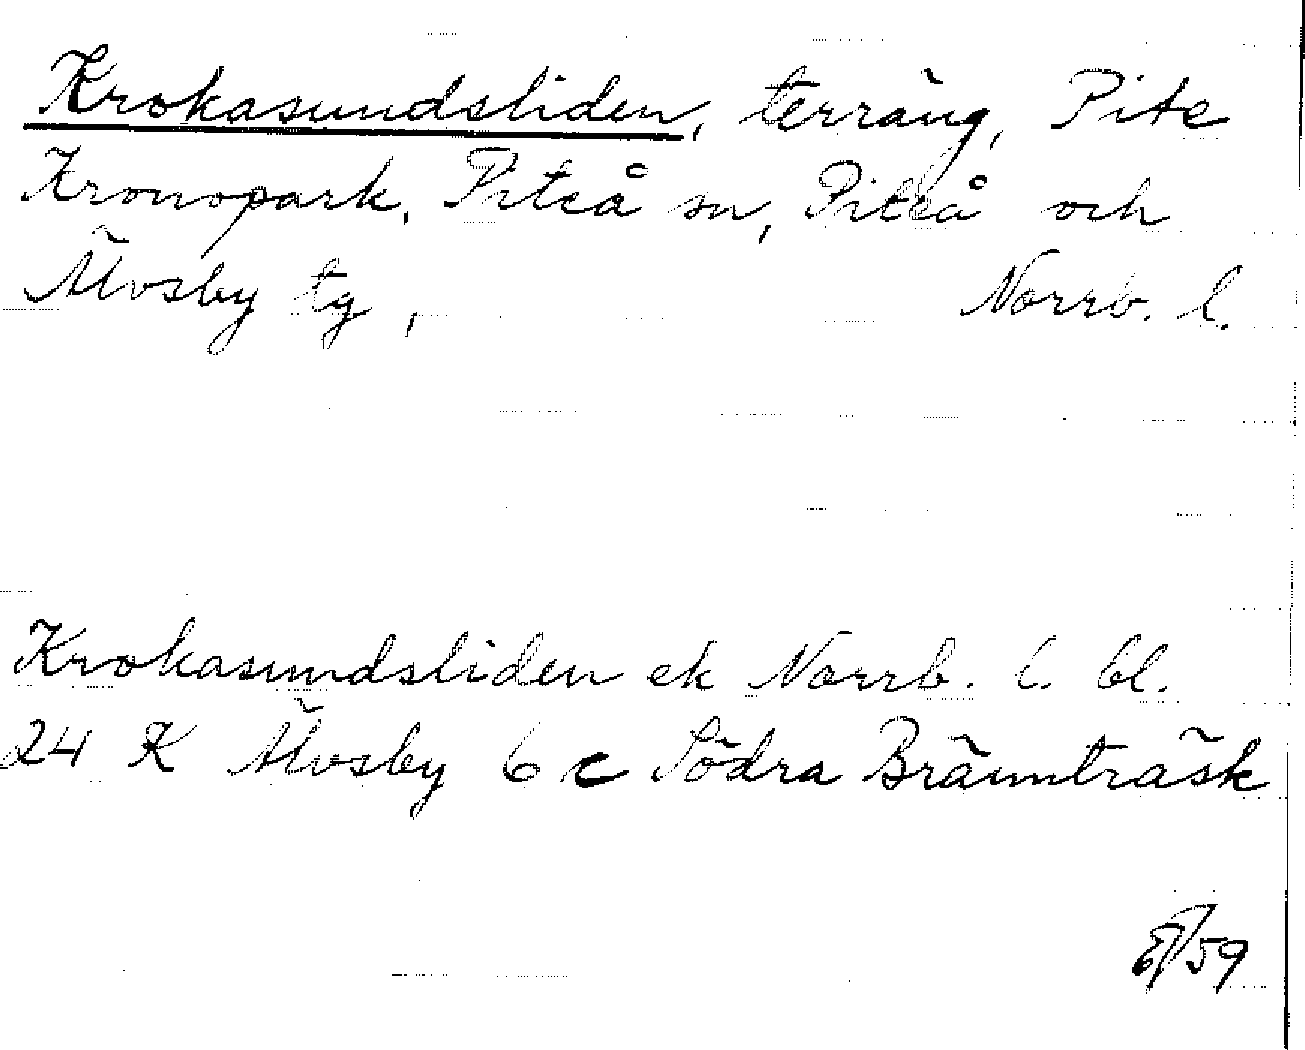 Krokasundsliden, terräng, Pite
Kronopark, Piteå sn, Piteå och
Älvsby tg, Norrb. l.
Krokasundsliden ek Norrb. l. bl.
24 K Älvsby 6 c Södra Brännträsk
/59